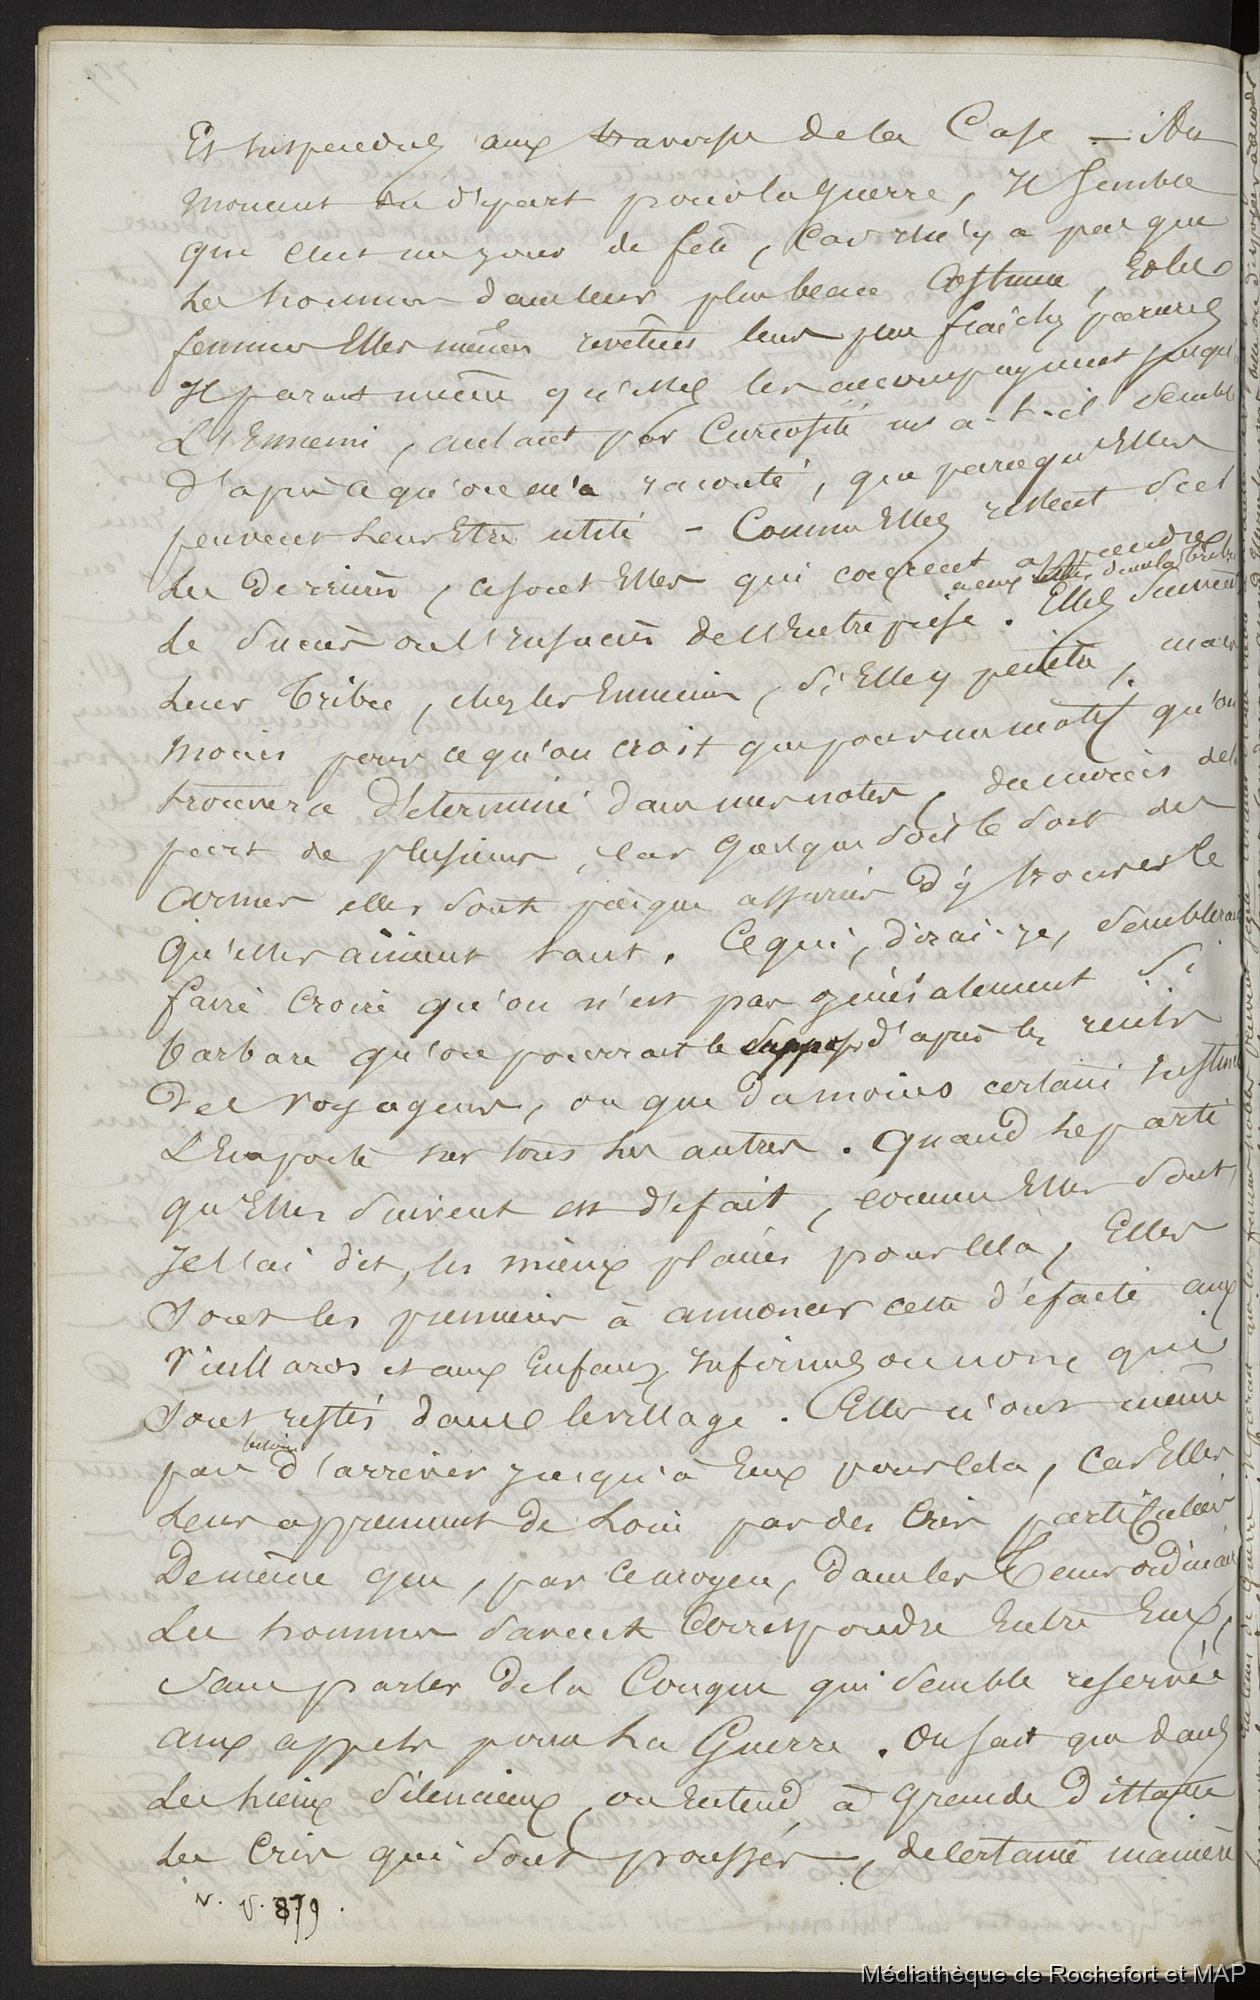 Est suspendue aux traverses de la Case — Au
moment du départ pour la guerre, Il semble
que c'est un jour de fête, Car il n'y a pas que
Les hommes dans leurs plus beaux Costume, Et les
femmes Elles mêmes revêtues leurs plus fraîches parures
Il parait même qu'elles les accompagnent jusqu'à
L'Ennemi, autant par Curiosité m'a-t-il semblé
D'après ce qu'on m'a raconté, que parce qu'Elles
peuvent leur Etre utile - Comme Elles restent
Les Derrières, ce sont Elles qui courent apprendre
à ceux restés dans la Tribu
Le Succès ou l'Insuccès de l'Entreprise. Elles suivent
Leur Tribu, chez les Ennemis, Si Elle y pénètre, mais
Moins pour ce qu'on croit que pour un motif qu'on
trouvera Déterminé dans mes notes, du moins de la
part de plusieurs, car quelque soit le sort des
Armes elles sont presque assurées d'y trouver ce
Qu'elles aiment tant. Ce qui, dirai-je, semblerait
faire Croire qu'on n'est pas généralement Si
barbare qu'on pourrait le supposer d'après les récits
Des voyageurs, ou que du moins certain Instinct
L'Emporte sur tous les autres. Quand le parti
qu'Elles suivent est défait, comme Elles sont,
Je l'ai dit, les mieux placées pour cela, Elles
Sont les premières à annoncer cette défaite aux
Vieillards et aux Enfans, infirmes ou non, qui
Sont restés dans le village. Elles n'ont même
pas besoin d'arriver jusqu'à Eux pour cela, Car Elles
Leur apprennent de Loin par des Cris particuliers
De même que, par ce moyen, dans les Tems ordinaires
Les hommes savent Correspondre Entre Eux,
Sans parler de la Conque qui semble reservée
aux appels pour La Guerre. On sait que dans
Les lieux Silencieux, on Entend à Grande Distance
Les Cris qui sont poussés, de certaine manière
v. v. 879.
Médiathèque de Rochefort et MAP